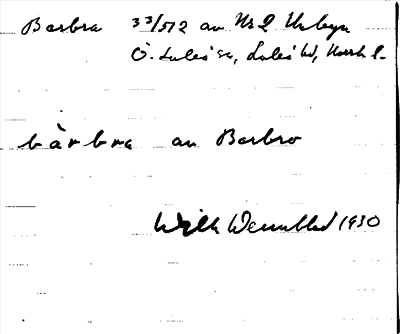 Barbra 3 3/512 av Nr 2 Unbyn
Ö. Luleå sn, Luleå hd, Norrb l.
bàrbra av Barbro
Will Wennblad 1930